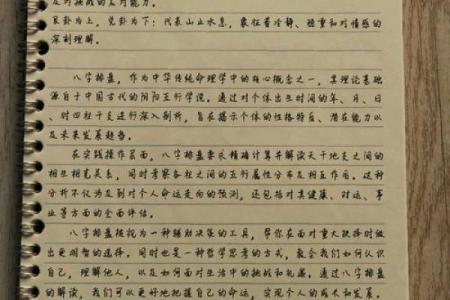 及对挑战的应对能力。
艮卦为上，兑卦为下：代表山止水息，象征着冷静、稳重和对情感的
深刻理解。
八字排盘，作为中华传统命理学中的核心概念之一，其理论基础
源自于中国古代的阴阳五行学说。通过对个体出生时间的年、月、日、
时四柱干支进行深入剖析，旨在揭示个体的性格特点、潜在能力以
及未来发展趋势。
在实践操作层面，八字排盘要求精确计算并解读天干地支之间的
相生相克关系，同时考察各柱之间的五行属性分布及相互作用。这种
分析不仅为及到对个人命运走向的预测，还包括对其健康、财运、事
业等方面的全面评估。
八字排盘被视为一种辅助决策的工具，帮你在面对重大抉择时做
出更明智的选择。同时也是一种哲学思考的方式，教会我们如何认识
自己，理解他人，以及如何面对生活中的挑战和机遇。通过八字排盘
的解读，我们可以更好地把握自己的命运，实现个人的成长和发展。